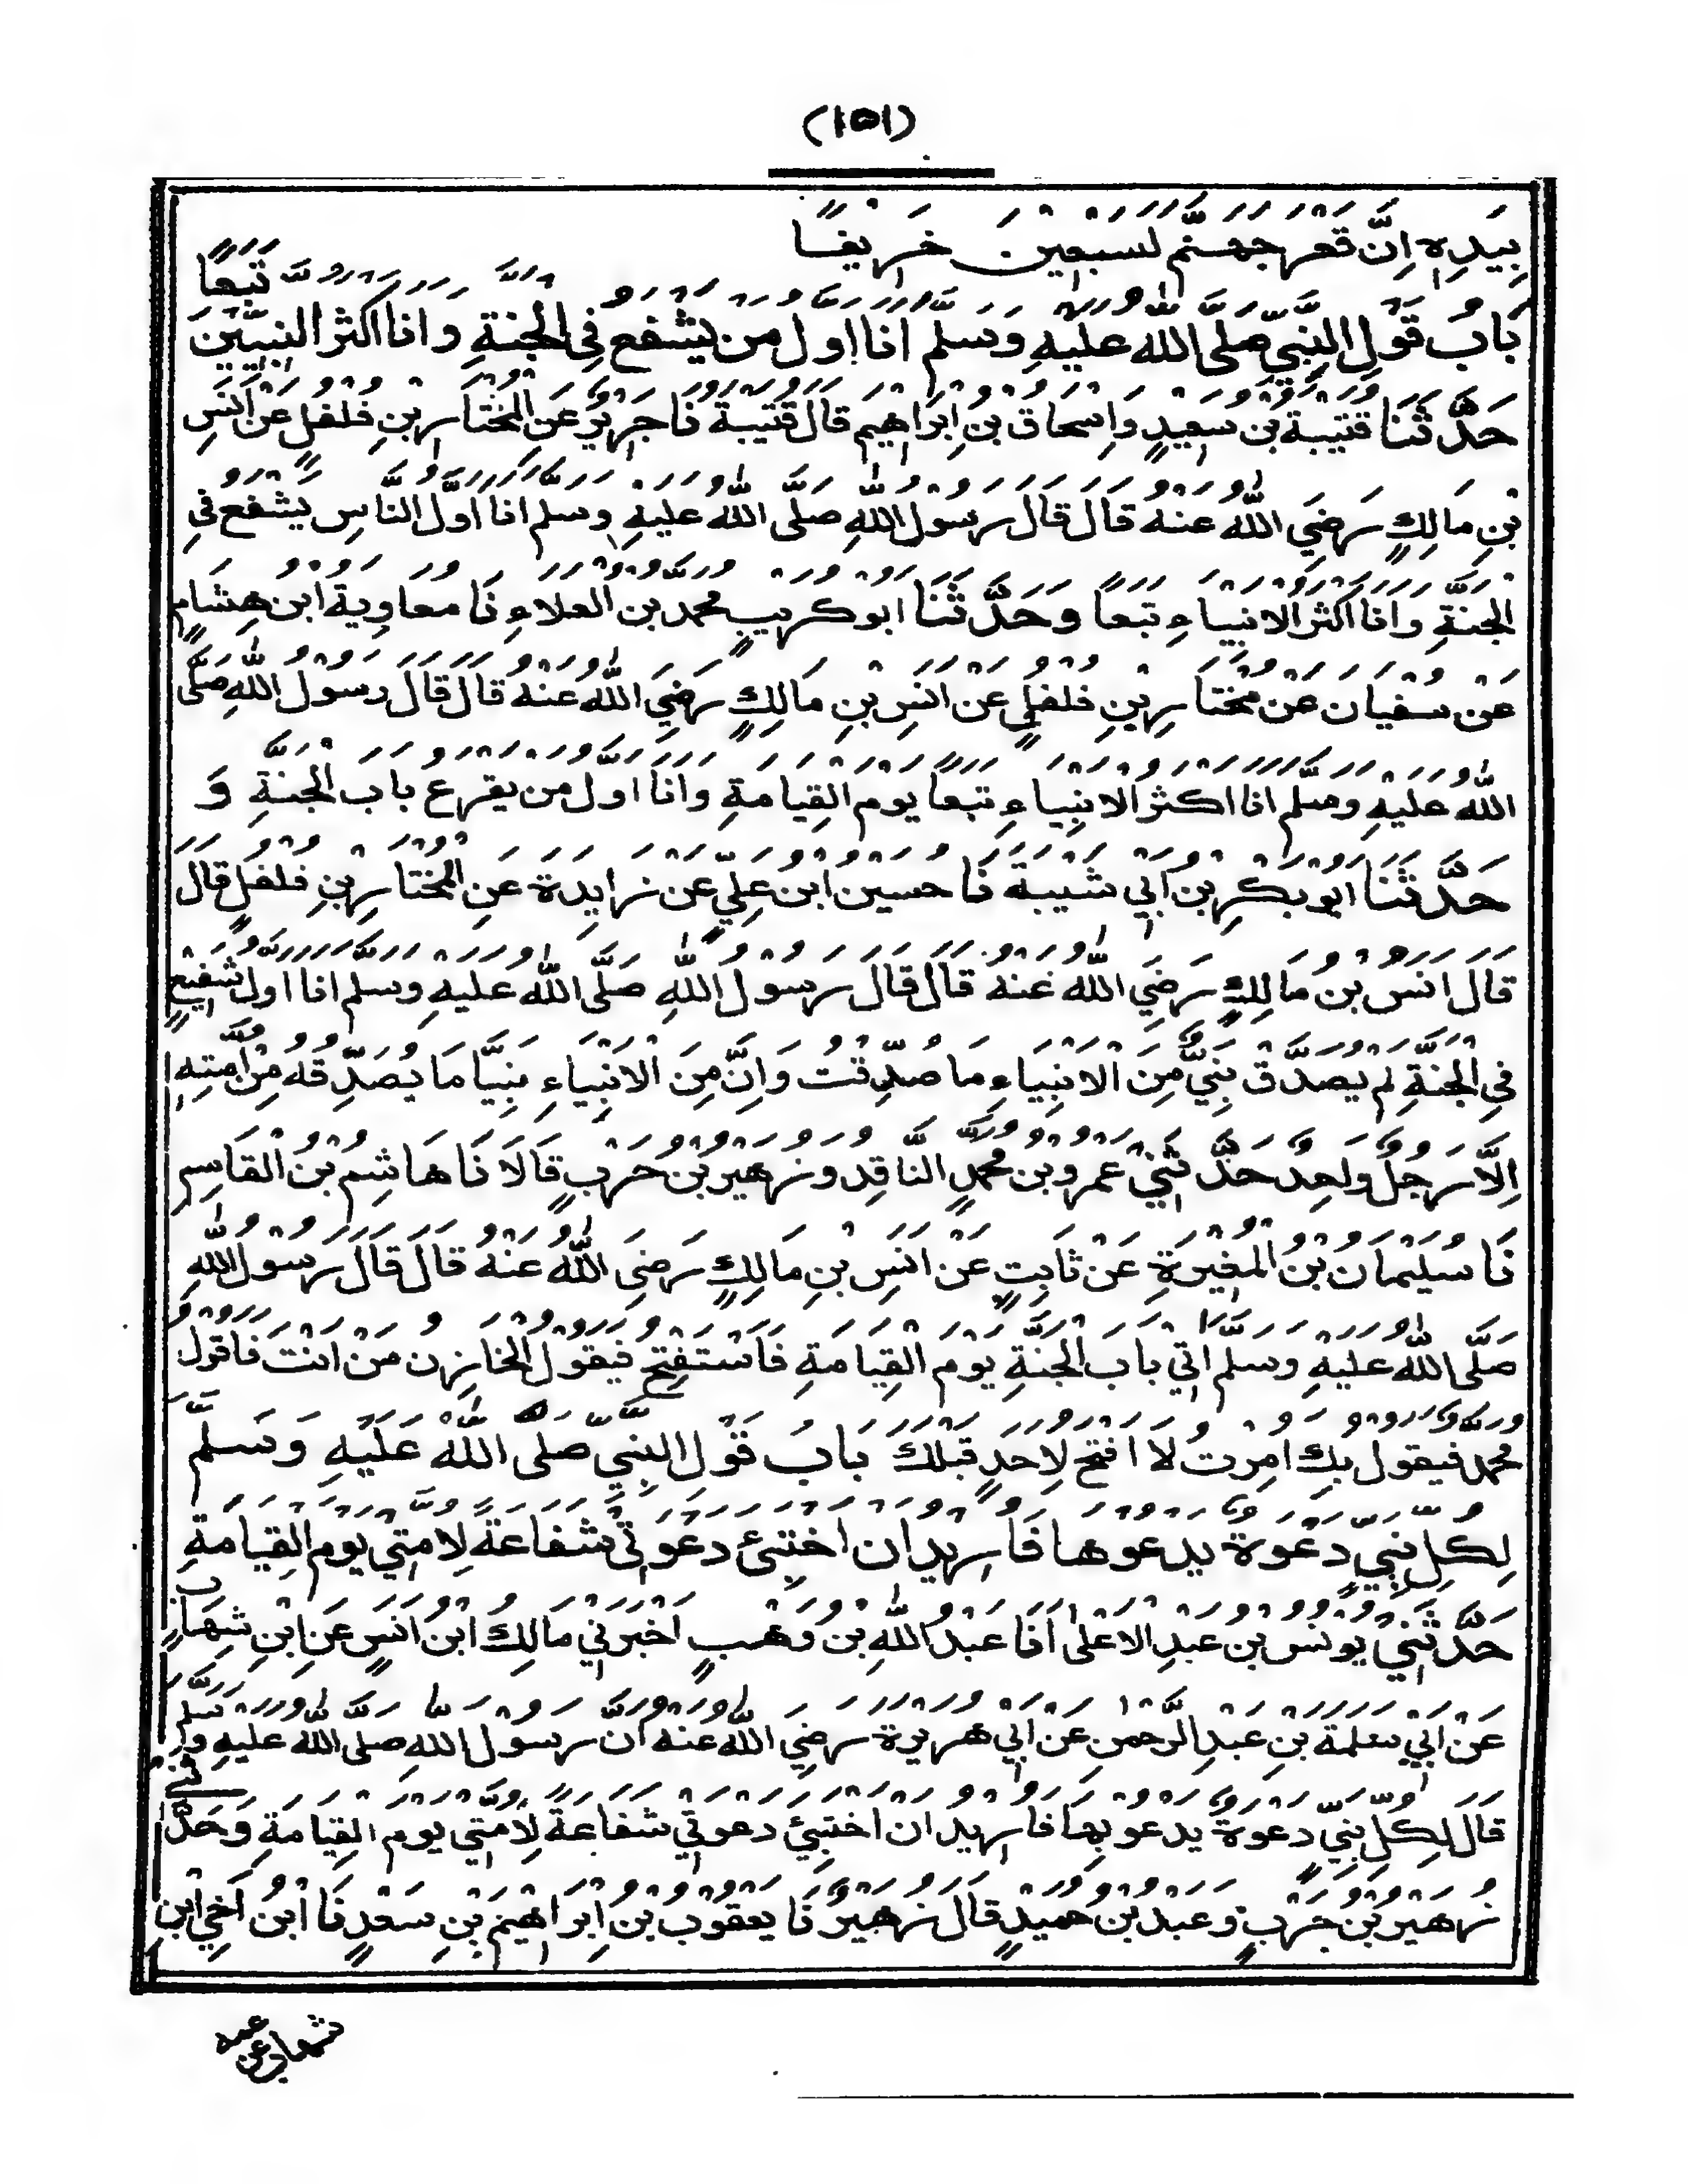 (١٥١)
بِيَدِهٖ اِنَّ قَعْرَ جَهَنَّمَ لَسَبْعِيْنَ خَرِيْفًا
بَابُ قَوْلِ النَّبِيِّ صَلَّى اللّٰهُ عَلَيْهِ وَسَلَّمَ اَنَا اَوَّلُ مَنْ يَّشْفَعُ فِى الْجَنَّةِ وَاَنَا اَكْثَرُ النَّبِيِّيْنَ تَبَعًا
حَدَّثَنَا قُتَيْبَةُ بْنُ سَعِيْدٍ وَاِسْحَاقُ بْنُ اِبْرَاهِيْمَ قَالَ قُتَيْبَةُ نَا جَرِيْرٌ عَنِ الْمُخْتَارِ بْنِ فُلْفُلٍ عَنْ اَنَسِ
بْنِ مَالِكٍ رَضِيَ اللّٰهُ عَنْهُ قَالَ قَالَ رَسُوْلُ اللّٰهِ صَلَّى اللّٰهُ عَلَيْهِ وَسَلَّمَ اَنَا اَوَّلُ النَّاسِ يَشْفَعُ فِى
الْجَنَّةِ وَاَنَا اَكْثَرُ الْاَنْبِيَاءِ تَبَعًا وَحَدَّثَنَا اَبُوْ كُرَيْبٍ مُحَمَّدُ بْنُ الْعَلَاءِ نَا مُعَاوِيَةُ ابْنُ هِشَامٍ
عَنْ سُفْيَانَ عَنْ مُخْتَارِ بْنِ فُلْفُلٍ عَنْ اَنَسِ بْنِ مَالِكٍ رَضِيَ اللّٰهُ عَنْهُ قَالَ قَالَ رَسُوْلُ اللّٰهِ صَلَّى
اللّٰهُ عَلَيْهِ وَسَلَّمَ اَنَا اَكْثَرُ الْاَنْبِيَاءِ تَبَعًا يَوْمَ الْقِيَامَةِ وَاَنَا اَوَّلُ مَنْ يَقْرَعُ بَابَ الْجَنَّةِ وَ
حَدَّثَنَا اَبُوْ بَكْرِ بْنُ اَبِيْ شَيْبَةَ نَا حُسَيْنُ ابْنُ عَلِيٍّ عَنْ زَايِدَةَ عَنِ الْمُخْتَارِ بْنِ فُلْفُلٍ قَالَ
قَالَ اَنَسُ بْنُ مَالِكٍ رَضِيَ اللّٰهُ عَنْهُ قَالَ قَالَ رَسُوْلُ اللّٰهِ صَلَّى اللّٰهُ عَلَيْهِ وَسَلَّمَ اَنَا اَوَّلُ شَفِيْعٍ
فِى الْجَنَّةِ لَمْ يُصَدَّقْ نَبِيٌّ مِّنَ الْاَنْبِيَاءِ مَا صُدِّقْتُ وَاِنَّ مِنَ الْاَنْبِيَاءِ نَبِيًّا مَا يُصَدِّقُهُ مِنْ اُمَّتِهٖ
اِلَّا رَجُلٌ وَّاحِدٌ حَدَّثَنِيْ عَمْرُو بْنُ مُحَمَّدٍ النَّاقِدُ وَزُهَيْرُ بْنُ حَرْبٍ قَالَا نَا هَاشِمُ بْنُ الْقَاسِمِ
نَا سُلَيْمَانُ بْنُ الْمُغِيْرَةِ عَنْ ثَابِتٍ عَنْ اَنَسِ بْنِ مَالِكٍ رَضِىَ اللّٰهُ عَنْهُ قَالَ قَالَ رَسُوْلُ اللّٰهِ
صَلَّى اللّٰهُ عَلَيْهِ وَسَلَّمَ اٰتِيْ بَابَ الْجَنَّةِ يَوْمَ الْقِيَامَةِ فَاَسْتَفْتِحُ فَيَقُوْلُ الْخَازِنُ مَنْ اَنْتَ فَاَقُوْلُ
مُحَمَّدٌ فَيَقُوْلُ بِكَ اُمِرْتُ لَا اَفْتَحُ لِاَحَدٍ قَبْلَكَ بَابُ قَوْلِ النَّبِيِّ صَلَّى اللّٰهُ عَلَيْهِ وَسَلَّمَ
لِكُلِّ نَبِيٍّ دَعْوَةٌ يَدْعُوْهَا فَاُرِيْدُ اَنْ اَخْتَبِئَ دَعْوَتِيْ شَفَاعَةً لِاُمَّتِيْ يَوْمَ الْقِيَامَةِ
حَدَّثَنِيْ يُوْنُسُ بْنُ عَبْدِ الْاَعْلٰى اَنَا عَبْدُ اللّٰهِ بْنُ وَهْبٍ اَخْبَرَنِيْ مَالِكُ ابْنُ اَنَسٍ عَنِ ابْنِ شِهَابٍ
عَنْ اَبِيْ سَلَمَةَ بْنِ عَبْدِ الرَّحْمٰنِ عَنْ اَبِيْ هُرَيْرَةَ رَضِيَ اللّٰهُ عَنْهُ اَنَّ رَسُوْلَ اللّٰهِ صَلَّى اللّٰهُ عَلَيْهِ وَسَلَّمَ
قَالَ لِكُلِّ نَبِيٍّ دَعْوَةٌ يَدْعُوْ بِهَا فَاُرِيْدُ اَنْ اَخْتَبِئَ دَعْوَتِيْ شَفَاعَةً لِاُمَّتِيْ يَوْمَ الْقِيَامَةِ وَحَدَّثَنِيْ
زُهَيْرُ بْنُ حَرْبٍ وَعَبْدُ بْنُ حُمَيْدٍ قَالَ زُهَيْرٌ نَا يَعْقُوْبُ بْنُ اِبْرَاهِيْمَ بْنِ سَعْدٍ نَا ابْنُ اَخِي ابْنِ
شهاب عن عمه